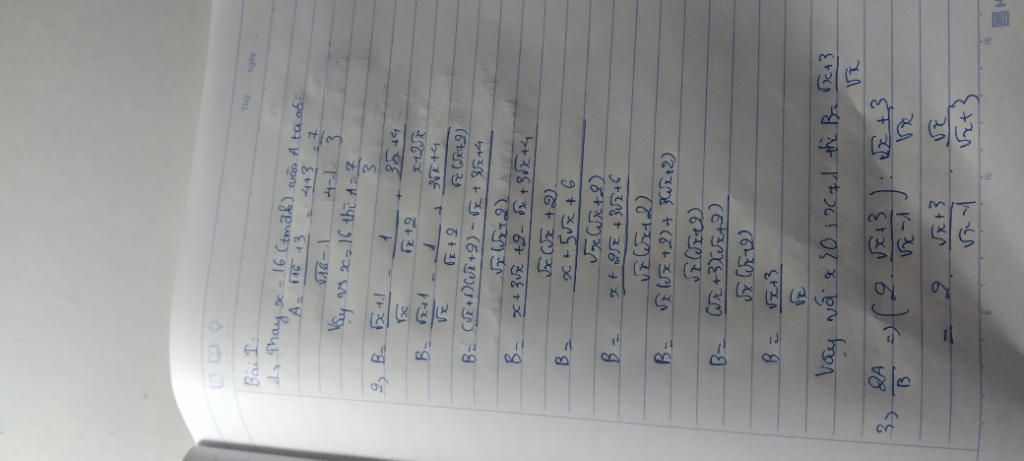 Thứ Ngày
Bài I.
1, Thay x = 16 (tmđk) vào A ta có:
A = √16 + 3 / √16 - 1 = 4+3 / 4-1 = 7 / 3
Vậy x = 16 thì A = 7 / 3
2, B = √x+1 / √x - 1 / √x+2 + 3√x+4 / x+2√x
B = √x+1 / √x - 1 / √x+2 + 3√x+4 / √x(√x+2)
B = (√x+1)(√x+2) - √x + 3√x+4 / √x(√x+2)
B = x+3√x+2 - √x + 3√x+4 / √x(√x+2)
B = x+5√x+6 / √x(√x+2)
B = x+2√x+3√x+6 / √x(√x+2)
B = √x(√x+2)+3(√x+2) / √x(√x+2)
B = (√x+3)(√x+2) / √x(√x+2)
B = √x+3 / √x
Vậy với thì B = √x+3 / √x
3, 2A / B => (2 . √x+3 / √x-1) : √x+3 / √x
= 2 . √x+3 / √x-1 . √x / √x+3